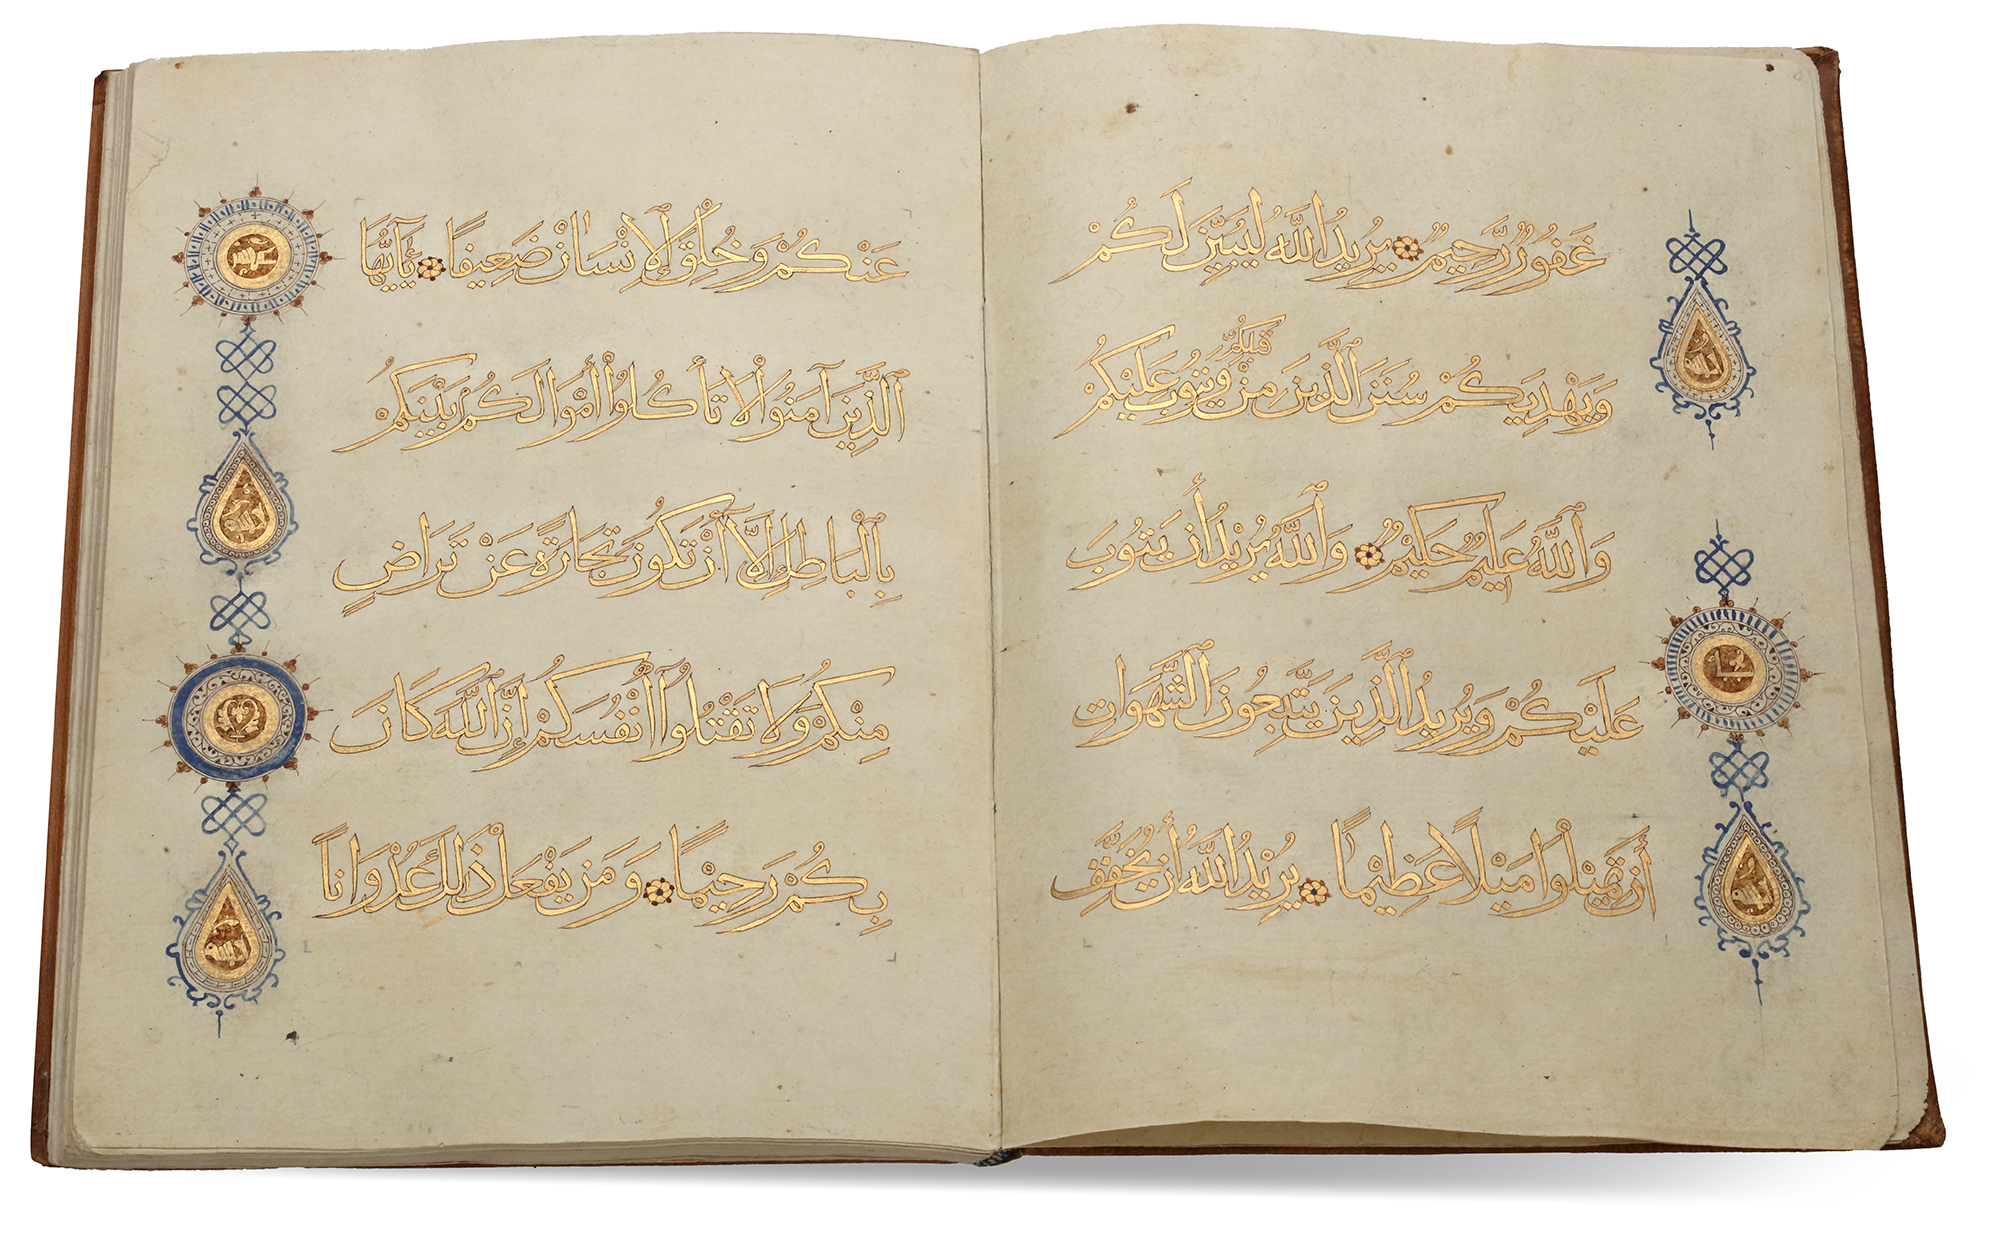 غَفُورٌ رَّحِيمٌ يُرِيدُ اللَّهُ لِيُبَيِّنَ لَكُمْ
وَيَهْدِيَكُمْ سُنَنَ الَّذِينَ مِنْ قَبْلِكُمْ وَيَتُوبَ عَلَيْكُمْ
وَاللَّهُ عَلِيمٌ حَكِيْمٌ وَاللَّهُ يُرِيْدُ أَن يَتُوبَ
عَلَيْكُمْ وَيُرِيدُ الَّذِينَ يَتَّبِعُونَ الشَّهَوَاتِ
أَن تَمِيْلُوا مَيْلًا عَظِيْمًا يُرِيْدُ اللَّهُ أَن يُخَفِّفَ
عَنْكُمْ وَخُلِقَ الْإِنْسَانُ ضَعِيفًا يَٰأَيُّهَا
الَّذِينَ آمَنُوا لَا تَأْكُلُوا أَمْوَالَكُمْ بَيْنَكُمْ
بِالْبَاطِلِ إِلَّا أَنْ تَكُونَ تِجَارَةً عَنْ تَرَاضٍ
مِنْكُمْ وَلَا تَقْتُلُوا أَنْفُسَكُمْ إِنَّ اللَّهَ كَانَ
بِكُمْ رَحِيْمًا وَمَن يَفْعَلْ ذَٰلِكَ عُدْوَانًا